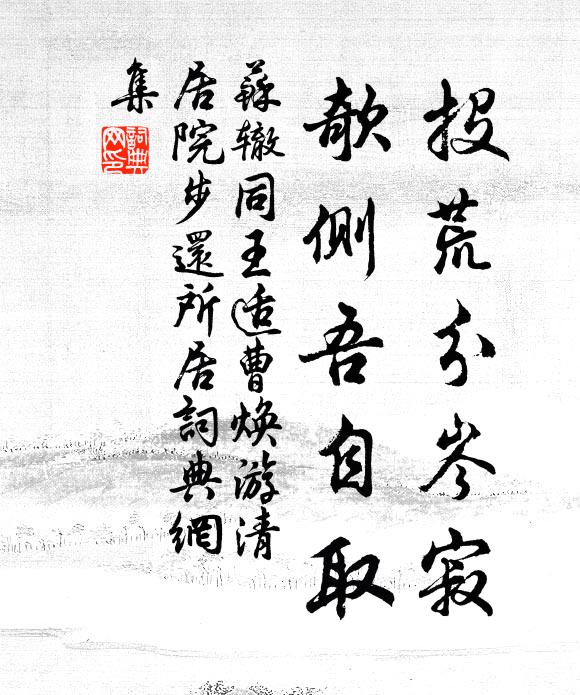 投荒分岑寂
欹側吾自取
蘇辙同王适曹煥游清
居院步還所居詞典網
集
詞典网印